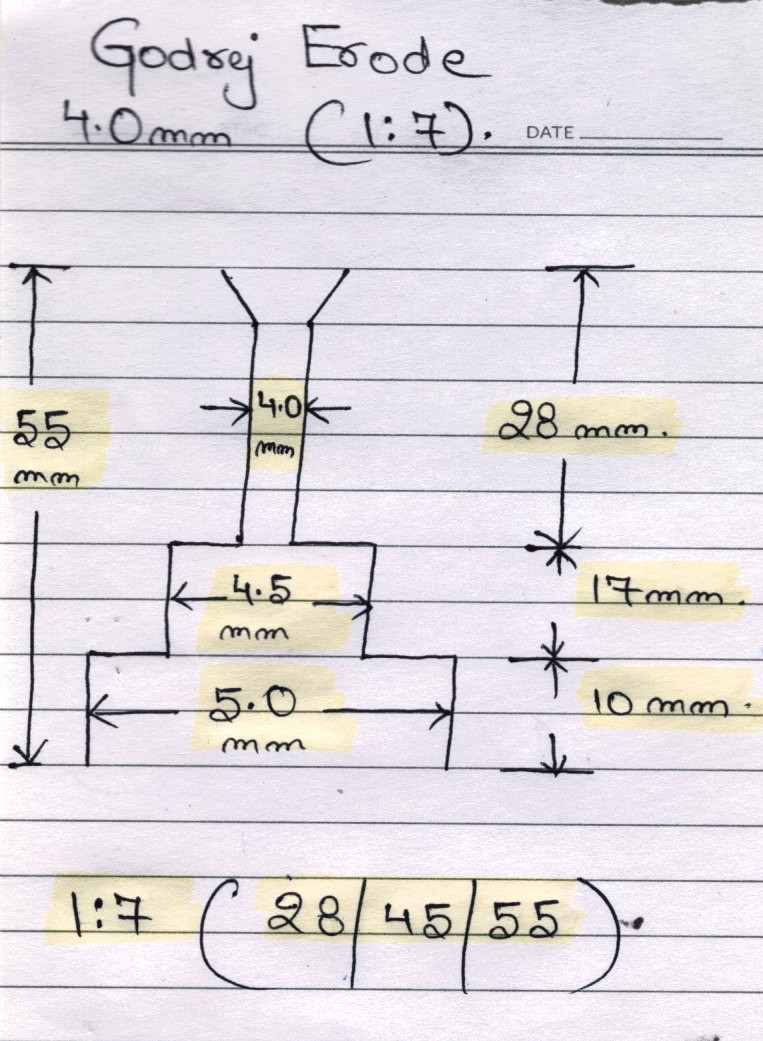 Godrej Erode
4.0mm (1:7).
DATE
55
mm
4.0
mm
28 mm.
4.5
mm
17mm.
5.0
mm
10 mm.
1:7 (28|45|55)